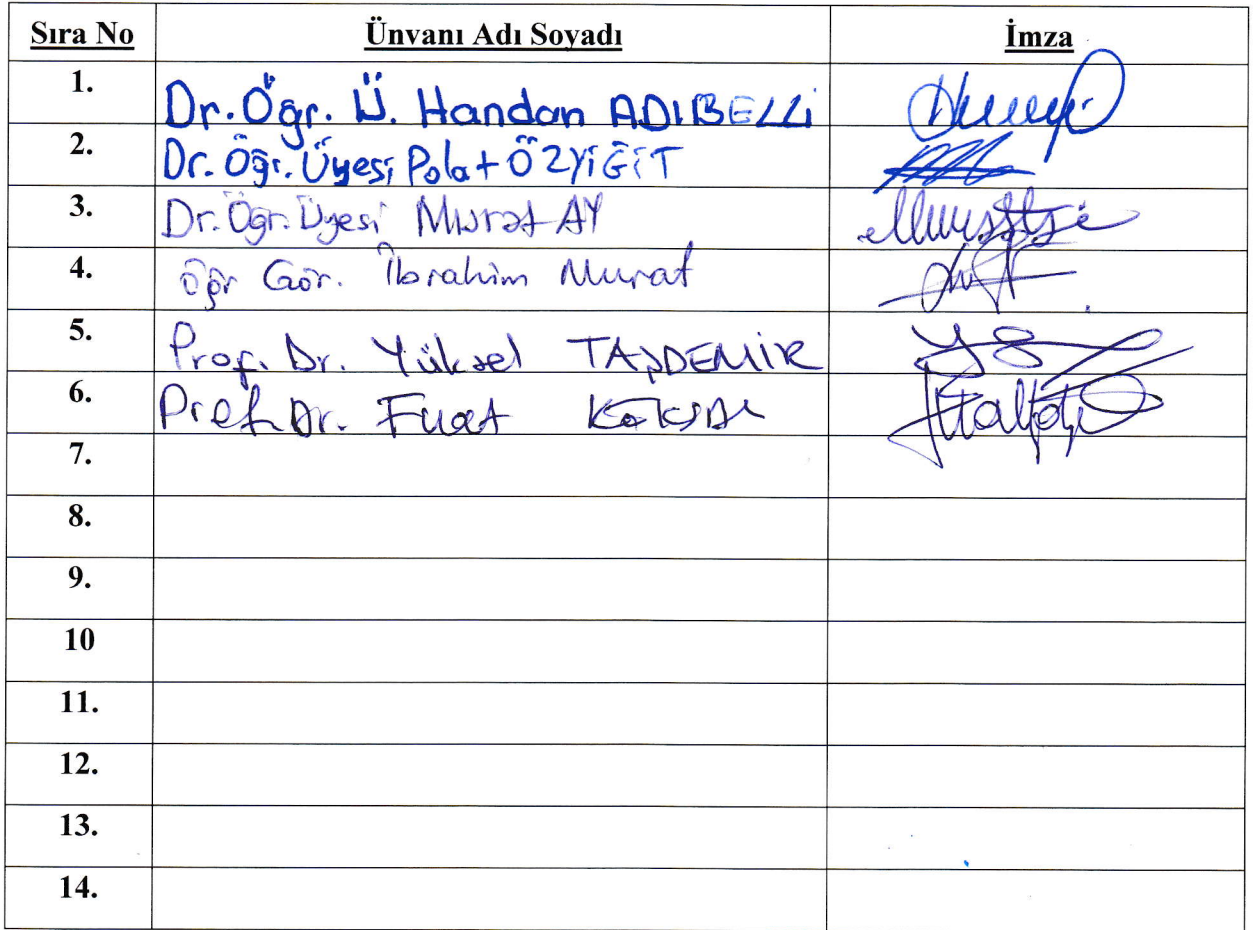 Sıra No Ünvanı Adı Soyadı İmza
1. Dr. Öğr. Ü. Handan ADIBELLİ
2. Dr. Öğr. Üyesi Polat ÖZYİĞİT
3. Dr. Öğr. Üyesi Murat AY
4. Öğr Gör. İbrahim Murat
5. Prof. Dr. Yüksel TAŞDEMİR
6. Prof. Dr. Fuat KÖKSAL
7.
8.
9.
10
11.
12.
13.
14.